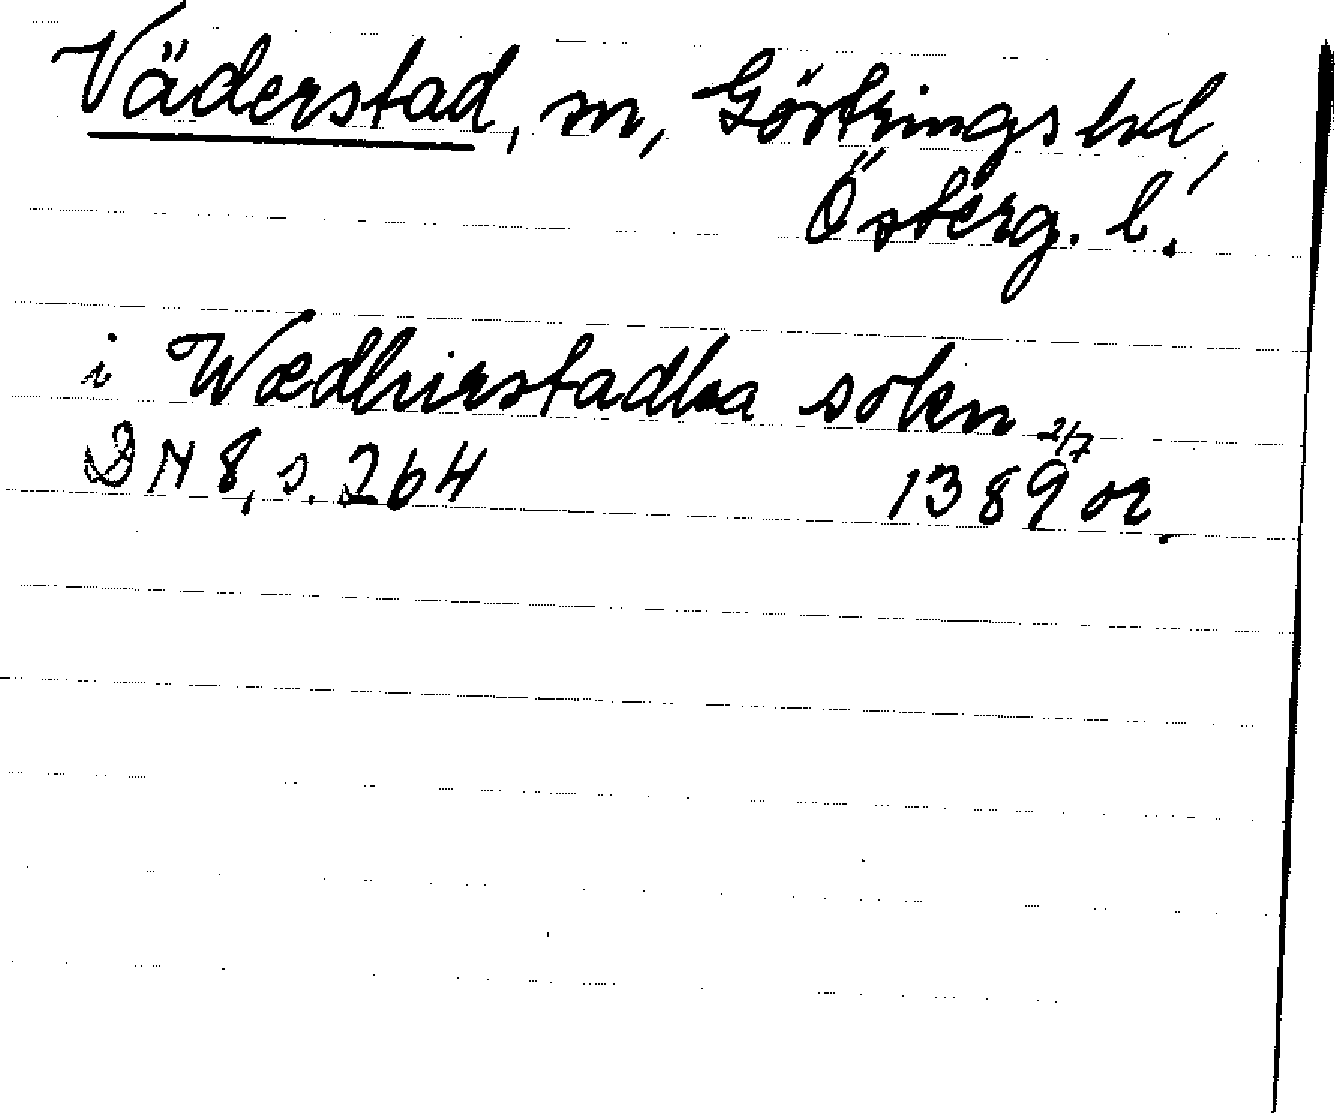 Väderstad, sn, Göstrings hd,
Österg. l.
i Wædhirstadha sokn
DN 8, s. 264 2/7 1389 or.